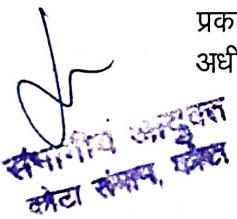 प्रक
अधी
संभागीय आयुक्त
कोटा संभाग, कोटा